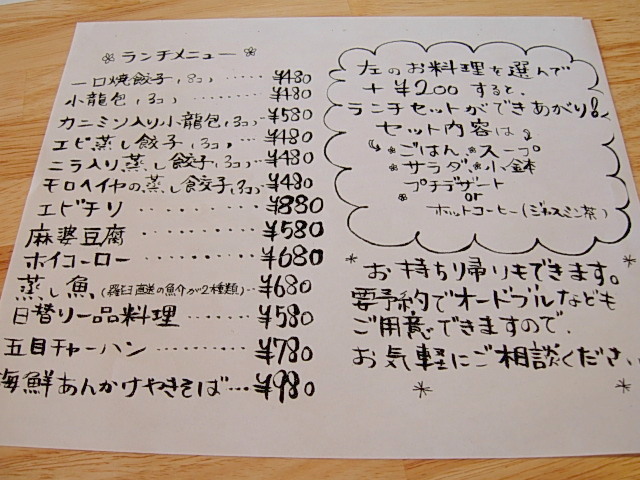 ランチメニュー
一口焼餃子(8コ)・・・・・¥480
小龍包(3コ)・・・・・¥480
カニミソ入り小龍包(3コ)・・¥580
エビ蒸し餃子(3コ)・・・¥480
ニラ入り蒸し餃子(3コ)・・¥480
モロヘイヤの蒸し餃子(3コ)・・¥480
エビチリ・・・・・・・・・¥880
麻婆豆腐・・・・・・・・¥580
ホイコーロー・・・・・・・¥680
蒸し魚(羅臼直送の魚介が2種類)・・¥680
日替り一品料理・・・・・・・¥580
五目チャーハン・・・・・・・¥780
海鮮あんかけやきそば・・・¥980
左のお料理を選んで
+¥200すると、
ランチセットができあがり!
セット内容は
ごはん スープ
サラダ 小鉢
プチデザート
or
ホットコーヒー(ジャスミン茶)
お持ち帰りもできます。
要予約でオードブルなども
ご用意できますので、
お気軽にご相談ください